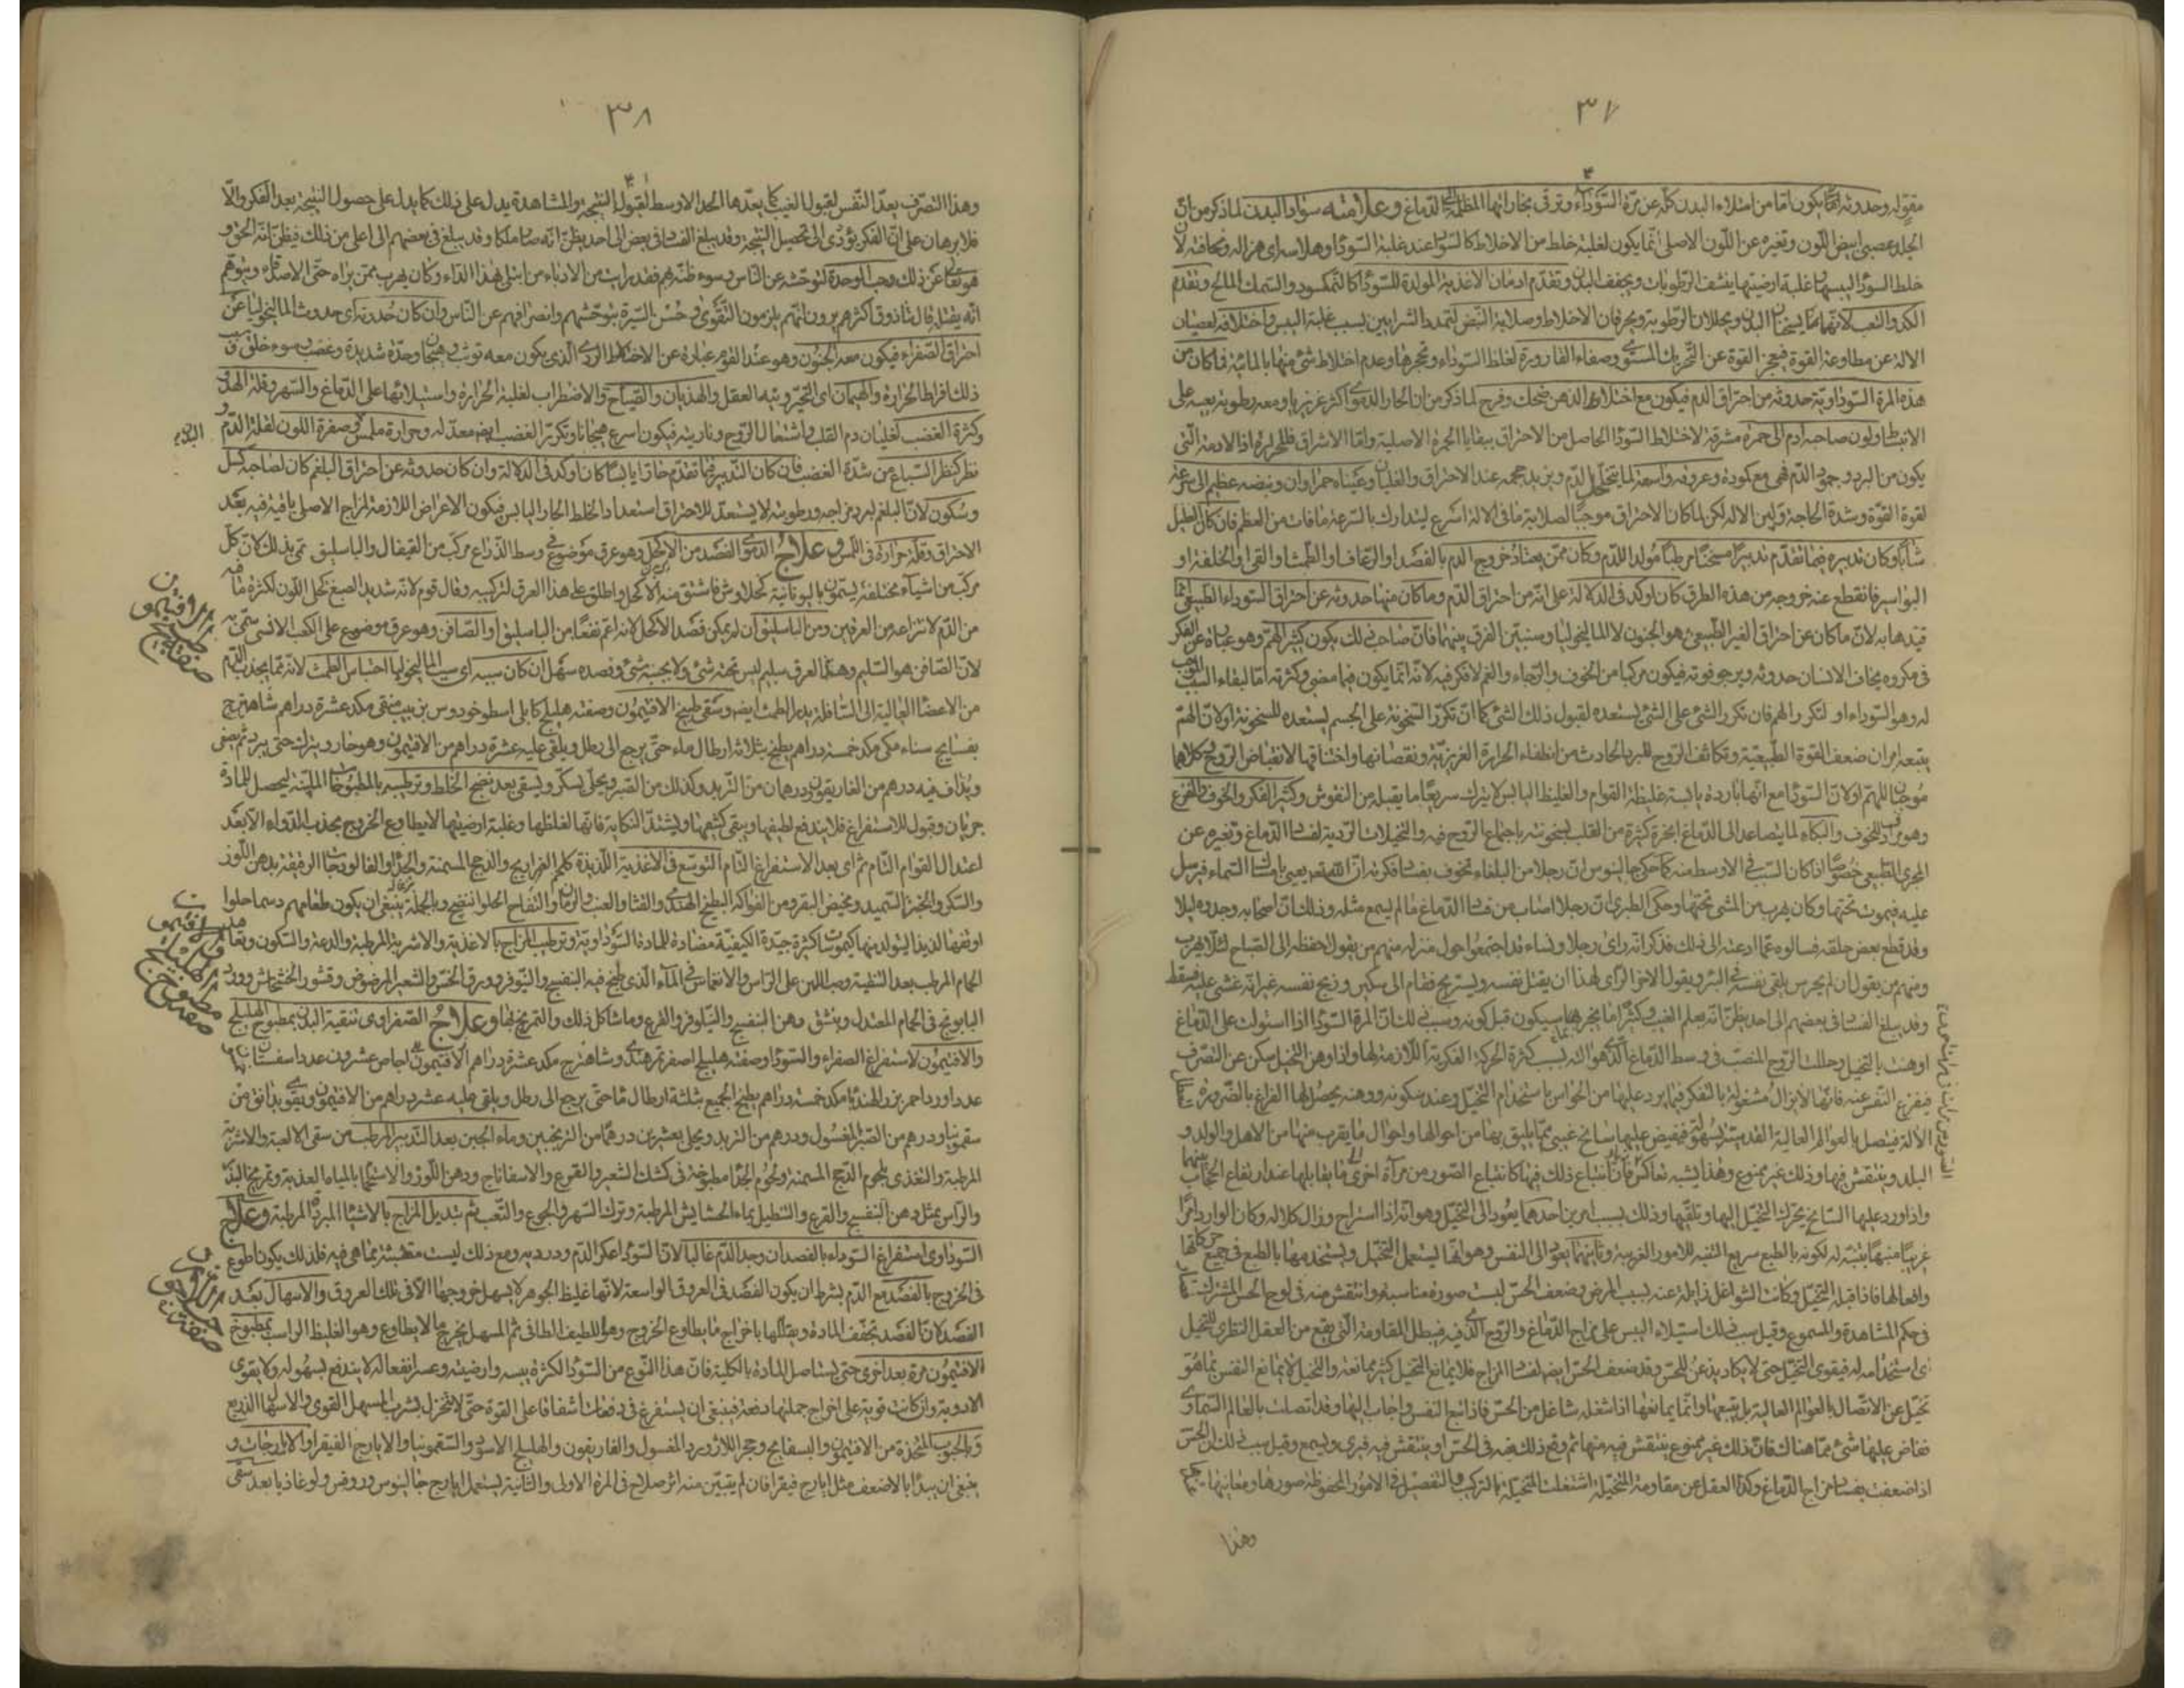 ٣٧
وحدوثه انما يكون اما من امتلاء البدن كله عن مرة السوداء وترقى بخاراتها المظلمة الى الدماغ وعلامته سواد البدن لما ذكر من ان
الجلد عصبى ابيض اللون وتغيره عن اللون الاصلى انما يكون لغلبة خلط من الاخلاط كالسودا عند غلبة السودا وهلاسه اى هزاله ونحافته لان
خلط السودا ليبسها وغلبة ارضيتها ينشف الرطوبات ويجفف البدن وتقدم ادمان الاغذية المولدة للسودا كالنمكسود والسمك المالح وتقدم
الكد والتعب لانهما يسخنان البدن ويحللان الرطوبة ويحرقان الاخلاط وصلابة النبض لتمدد الشرايين بسبب غلبة اليبس واختلافه لعصيان
الالة عن مطاوعة القوة فيعجز القوة عن التحريك المستوى وصفاء القارورة لغلظ السوداء وتحجرها وعدم اختلاط شئ منها بالمائية فما كان من
هذه المرة السوداوية حدوثه من احتراق الدم فيكون مع اختلاط الذهن ضحك وفرح لما ذكر من ان الحار الدموى اكثر غزيريا ومعه رطوبة يعينه على
الانبساط ولون صاحبه ادم الى حمرة مشرقة لاختلاط السودا الحاصل من الاحتراق ببقايا الحمرة الاصلية واما الاشراق فللحرارة اذ الادمة التى
يكون من البرد وجمود الدم فهى مع كمودة وعروقه واسعة لما يتخلخل الدم ويزيد حجمه عند الاحتراق والغليان وعيناه حمراوان ونبضه عظيم الى سرعة
لقوة القوة وشدة الحاجة ولين الالة لكن لما كان الاحتراق موجبا لصلابة ما فى الالة اسرع ليتدارك بالسرعة ما فات من العظم فان كان العليل
شابا وكان تدبيره فيما تقدم تدبيرا مسخنا مرطبا مولدا للدم وكان ممن يعتاد خروج الدم بالفصد او الرعاف او الطمث او القئ او الخلفة او
البواسير فانقطع عنه خروجه من هذه الطرق كان اوكد فى الدلالة على انه من احتراق الدم وما كان منها حدوثه عن احتراق السوداء الطبيعى انما
قيدها به لان ما كان عن احتراق الغير الطبيعى هو الجنون لا الماليخوليا وسنبين الفرق بينهما فان صاحب ذلك يكون كثير الهم وهو عبارة عن الفكر
فى مكروه يخاف الانسان حدوثه ويرجو فوته فيكون مركبا من الخوف والرجاء والغم لا فكر فيه لانه انما يكون فيما مضى وكثرته اما لبقاء السبب الموجب
له وهو السوداء او لتكرر الهم فان تكرر الشئ على الشئ يستعده لقبول ذلك الشئ كما ان تكرر السخونة على الجسم يستعده للسخونة او لان الهم
يتبعه امران ضعف القوة الطبيعية وتكاثف الروح للبرد الحادث من انطفاء الحرارة الغريزية ونقصانها واختناقها لانقباض الروح وكلاهما
موجبان للهم او لان السودا مع انها باردة يابسة غليظة القوام والغليظ اليابس لا يترك سريعا ما يقبله من النقوش وكثير الفكر والخوف والفزع
وهو مرادف للخوف والبكاء لما يتصاعد الى الدماغ ابخرة كثيرة من القلب لسخونته باجتماع الروح فيه والتخيلات الردية لفساد الدماغ وتغيره عن
المجرى الطبيعى خصوصا اذا كان السبب فى الاوسط منه كما حكى جالينوس ان رجلا من البلغاء تخوف بفساد فكرته ان الله تعالى يعيى بامساك السماء فيرسل
عليه فيموت تحتها وكان يهرب من المشى تحتها وحكى الطبرى ان رجلا اصابه من فساد الدماغ ما لم يسمع مثله وذلك ان اصحابه وجدوه ليلا
وقد قطع بعض حلقه فسالوه عما دعته الى ذلك فذكر انه راى رجالا ونساء قد اجتمعوا حول منزله منهم من يقول احفظه الى الصباح لئلا يهرب
ومنهم من يقول ان لم يحرس يلقى نفسه فى البئر ويقول الاخر الراى لهذا ان يقتل نفسه ويستريح فقام الى سكين وذبح نفسه غير انه غشى عليه فسقط
وقد يبلغ الفساد فى بعضهم الى حد يظن انه يعلم الغيب وكثيرا ما يخبر بما سيكون قبل كونه وسبب ذلك ان المرة السودا اذا استولت على الدماغ
اوهنت بالتخيل وحللت الروح المنصب فى وسط الدماغ الذى هو الته بسبب كثرة الحركة الفكرية اللازمة لها واذا وهن التخيل سكن عن التصرف
فيفرغ النفس عنه فانها لا يزال مشغولة بالتفكر فيما يرد عليها من الحواس باستخدام التخيل وعند سكونه ووهنه يحصل لها الفراغ بالضرورة
الالة فيتصل بالعوالم العالية القدسية بسهولة فيفيض عليها سانح غيبى مما يليق بها من احوالها واحوال ما يقرب منها من الاهل والولد و
البلد وينتقش فيها وذلك غير ممنوع وهذا يشبه تعاكس فان انتباع ذلك فيها كانتباع الصور من مرآة اخرى الى ما يقابلها عند ارتفاع الحجاب بينهما
واذا ورد عليها السانح يحرك التخيل اليها وتلقيها وذلك بسبب امرين احدهما يعود الى التخيل وهو انه اذا استراح وزال كلاله وكان الوارد امرا
غريبا منبها ينتبه له لكونه بالطبع سريع التنبه للامور الغريبة وثانيهما يعود الى النفس وهو انها يستعمل التخيل ويستخدمها بالطبع فى جميع حركاتها
وافعالها فاذا قبله التخيل وكانت الشواغل زايلة عنه بسبب المرض وضعف الحس لبست صورة مناسبة وانتقش منه فى لوح الحس المشترك
فى حكم المشاهدة والمسموع وقيل سبب ذلك استيلاء اليبس على مزاج الدماغ والروح الذى فيه فيبطل المقاومة التى يقع من العقل النظرى للتخيل
فى استخدامه له فيقوى التخيل حتى لا يكاد يذعن للحس وقد ضعف الحس ايضا لفساد المزاج فلا يمانع التخيل كثير ممانعة والتخيل لا يمانع النفس بما هو
تخيل عن الاتصال بالعوالم العالية بل يتبعها وانما يمانعها اذا شغله شاغل من الحس فاذا تبع النفس واجاب اليها وقد اتصلت بالعالم السماوى
ففاض عليها شئ مما هناك فان ذلك غير ممنوع ينتقش فيه منها ثم وقع ذلك عنه فى الحس او ينتقش فيه فيرى ويسمع وقيل سبب ذلك ان الحس
اذا ضعفت بفساد مزاج الدماغ وكذا العقل عن مقاومة المتخيلة اشتغلت المتخيلة بالتركيب والتفصيل فى الامور المحفوظة صورها ومعانيها
وهذا
٣٨
وهذا التصرف يعد النفس لقبول الغيب كما يعدها الحد الاوسط لقبول النتيجة والمشاهدة يدل على ذلك كما يدل على حصول النتيجة بعد الفكر والا
فلا برهان على ان الفكر يؤدى الى تحصيل النتيجة وقد يبلغ الفساد فى بعض الى حد يظن انه صار ملكا وقد يبلغ فى بعضهم الى اعلى من ذلك فيظن انه الحق و
هو تعالى عن ذلك وحب الوحدة لتوحشه عن الناس وسوء ظنه بهم فقد رايت من الادباء من ابتلى بهذا الداء وكان يهرب ممن يراه حتى الاصدقاء ويتوهم
انه يقتله قال ثاذوق اكثرهم يرون انهم يلزمون التقوى وحسن السيرة بتوحشهم وانصرافهم عن الناس وان كان حدوثه اى حدوث الماليخوليا عن
احتراق الصفراء فيكون معه الجنون وهو عند القوم عبارة عن الاختلاط الردى الذى يكون معه توثب وهيجان وحدة شديدة وغضب وسوء خلق وسبب
ذلك افراط الحرارة والهيمان اى التحير وتيه العقل والهذيان والصياح والاضطراب لغلبة الحرارة واستيلائها على الدماغ والسهر وقلة الهدو
وكثرة الغضب لغليان دم القلب واشتعال الروح وناريته فيكون اسرع هيجانا وتكرر الغضب ايضا معد له وحرارة ملمس وصفرة اللون لقلة الدم و
البدن
نظر كنظر السباع من شدة الغضب فان كان التدبير فيما تقدم حارا يابسا كان اوكد فى الدلالة وان كان حدوثه عن احتراق البلغم كان لصاحبه كسل
وسكون لان البلغم لبرد مزاجه ورطوبته لا يستعد للاحتراق استعداد الخلط الحار اليابس فيكون الاعراض اللازمة للمزاج الاصلى باقية فيه بعد
الاحتراق وقلة حرارة فى اللمس وعلاج الدموى الفصد من الاكحل وهو عرق موضوع فى وسط الذراع مركب من القيفال والباسليق سمى بذلك لان كل
مركب من اشياء مختلفة يسمون باليونانية كحلاوش فاشتق منه الاكحل واطلق على هذا العرق لتركيبه وقال قوم لانه شديد الصبغ كحل اللون لكثرة ما فيه
من الدم لانتزاعه من العرقين ومن الباسليق ان لم يمكن فصد الاكحل لانه اعم نفعا من الباسليق او الصافن وهو عرق موضوع على الكعب الانسى سمى به
لان الصافن هو السليم وهذا العرق سليم ليس تحته شئ ولا بجنبه شئ وفصده سهل ان كان سببه اى سبب الماليخوليا احتباس الطمث لانه مما يجذب الدم
من الاعضا العالية الى السافلة يدر الطمث ايضا وسقى طبيخ الافتيمون وصفته هليلج كابلى اسطوخودوس زبيب منقى مكد عشرة دراهم شاهترج
بسفايج سناء مكى مكد خمسة دراهم يطبخ بثلاثة ارطال ماء حتى يرجع الى رطل ويلقى عليه عشرة دراهم من الافتيمون وهو حار ويترك حتى يبرد ثم يصفى
ويذاف فيه درهم من الغاريقون ودرهمان من التربد وكذلك من الصبر ويحلى بسكر ويسقى بعد نضج الخلط وترطيبه بالمطبوخات الملينة ليحصل للمادة
جريان وقبول للاستفراغ فلا يندفع لطيفها ويبقى كثيفها ويشتد النكاية فانها لغلظها وغلبة ارضيتها لا يطاوع الخروج بجذب الدواء الا بعد
اعتدال القوام التام ثم اى بعد الاستفراغ التام التوسع فى الاغذية اللذيذة كلحم الفراريج والدجج المسمنة والجدى والفالوذجات الرقيقة بدهن اللوز
والسكر والخبز السميد ومخيض البقر ومن الفواكه البطيخ الهندى والقثا والعنب والرمان والتفاح الحلو النضيج وبالجملة ينبغى ان يكون طعامهم دسما حلوا
او تفها لذيذا ليتولد منها كيموسا كثيرة جيدة الكيفية مضادة للمادة السوداوية وترطيب المزاج بالاغذية والاشربة المرطبة والدعة والسكون وتعاهد
الحمام المرطب بعد التنقية وصب اللبن على الراس والانغماس فى الماء الذى طبخ فيه البنفسج والنيلوفر وورق الخس والشعير المرضوض وقشور الخشخاش وورد
البابونج فى الحمام المعتدل وينشق دهن البنفسج والنيلوفر والقرع وما شاكل ذلك والتمريخ بها وعلاج الصفراوى تنقية البدن بمطبوخ الهليلج
والافتيمون لاستفراغ الصفراء والسودا وصفته هليلج اصفر تمر هندى وشاهترج مكد عشرة دراهم الافتيمون اجاص عشرون عددا سفستان
عددا ورد احمر بزر الهندبا مكد خمسة دراهم يطبخ الجميع بثلثة ارطال ماء حتى يرجع الى رطل ويلقى عليه عشر دراهم من الافتيمون ويقوى بدانق من
سقمونيا ودرهم من الصبر المغسول ودرهم من التربد ويحلى بعشرين درهما من الترنجبين وماء الجبن بعد التدبير المرطب من سقى الالعبة والاشربة
المرطبة والتغذى بلحوم الدجج المسمنة ولحوم الجدا مطبوخة فى كشك الشعير والقرع والاسفاناج ودهن اللوز والاستحمام بالمياه العذبة وتمريخ البدن
والراس بمثل دهن البنفسج والقرع والتنطيل بماء الحشايش المرطبة وترك السهر والجوع والتعب ثم تبديل المزاج بالاشيا المبردة المرطبة وعلاج
السوداوى استفراغ السوداء بالفصد ان وجد الدم غالبا لان السودا عكر الدم ودرديه ومع ذلك ليست متشبثة بما هى فيه فلذلك يكون اطوع
فى الخروج بالفصد مع الدم بشرط ان يكون الفصد فى العروق الواسعة لانها غليظ الجوهر لا يسهل خروجها الا فى تلك العروق والاسهال بعد
الفصد لان الفصد تخفف المادة ويقللها باخراج ما يطاوع الخروج وهو اللطيف الطافى ثم المسهل يخرج ما لا يطاوع وهو الغليظ الراسب بمطبوخ
الافتيمون مرة بعد اخرى حتى يستاصل المادة بالكلية فان هذا النوع من السودا لكثرة يبسه وارضيته وعسر انفعاله لا يندفع بسهولة ولا يقوى
الادوية وان كانت قوية على اخراج جملتها دفعة فينبغى ان يستفرغ فى دفعات اشفاقا على القوة حتى لا تنخزل بشرب المسهل القوى والاسهال الذريع
وبالحبوب المتخذة من الافتيمون والبسفايج وحجر اللازورد المغسول والغاريقون والهليلج الاسود والسقمونيا والايارج الفيقرا والايارجات و
ينبغى ان يبدا بالاضعف مثل ايارج فيقرا فان لم يتبين منه اثر صلاح فى المرة الاولى والثانية يستعمل ايارج جالينوس وروفس ولوغاذيا بعد سقى